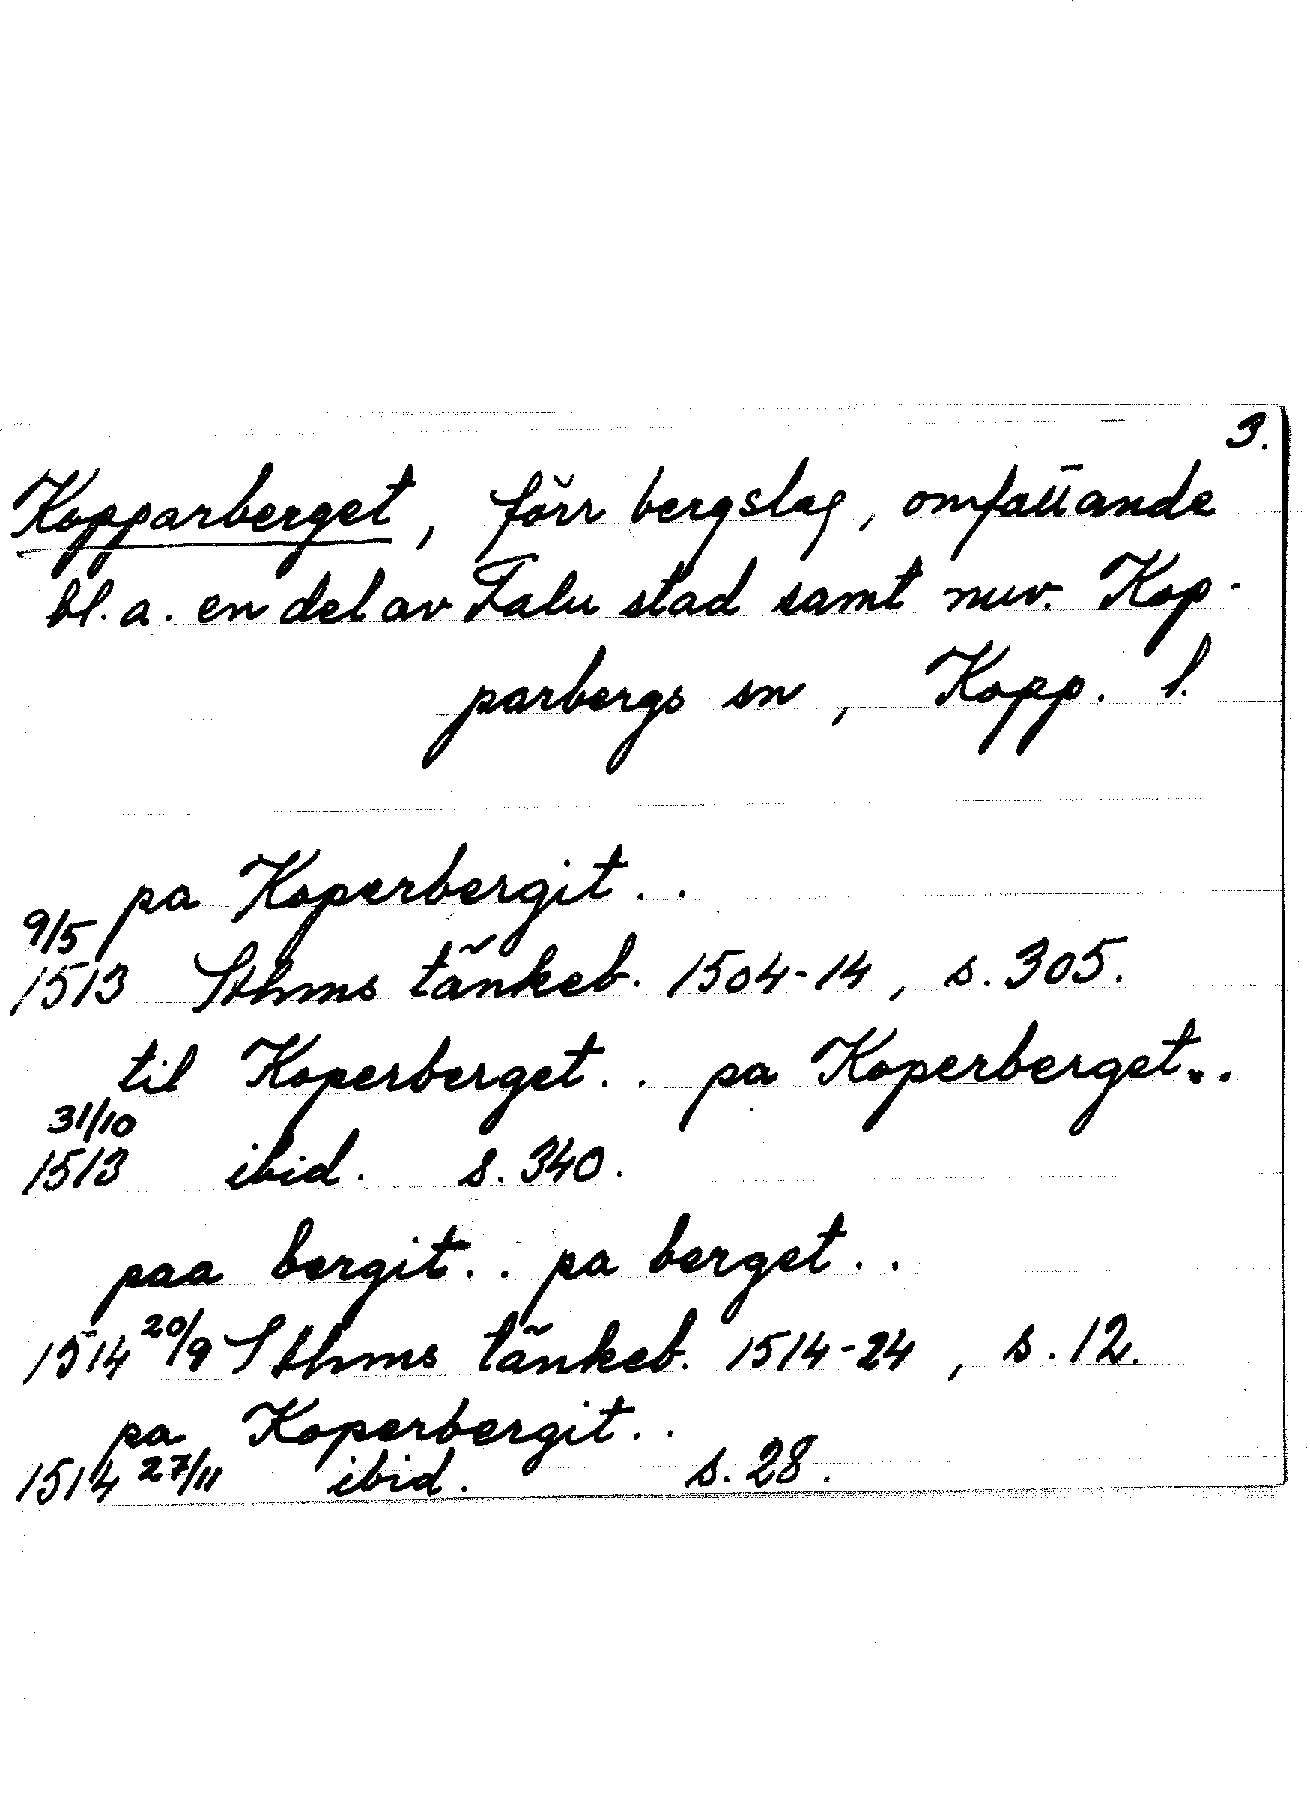 3.
Kopparberget, förr bergslag, omfattande
bl.a. en del av Falu stad samt nuv. Kop-
parbergs sn, Kopp. l.
pa Koperbergit..
9/5
1513 Sthms tänkeb. 1504-14, s. 305.
til Koperberget.. pa Koperberget..
31/10
1513 ibid. s. 340.
paa bergit.. pa berget..
1514 20/9 Sthms tänkeb. 1514-24, s. 12.
pa Koperbergit..
1514 27/11 ibid. s. 28.